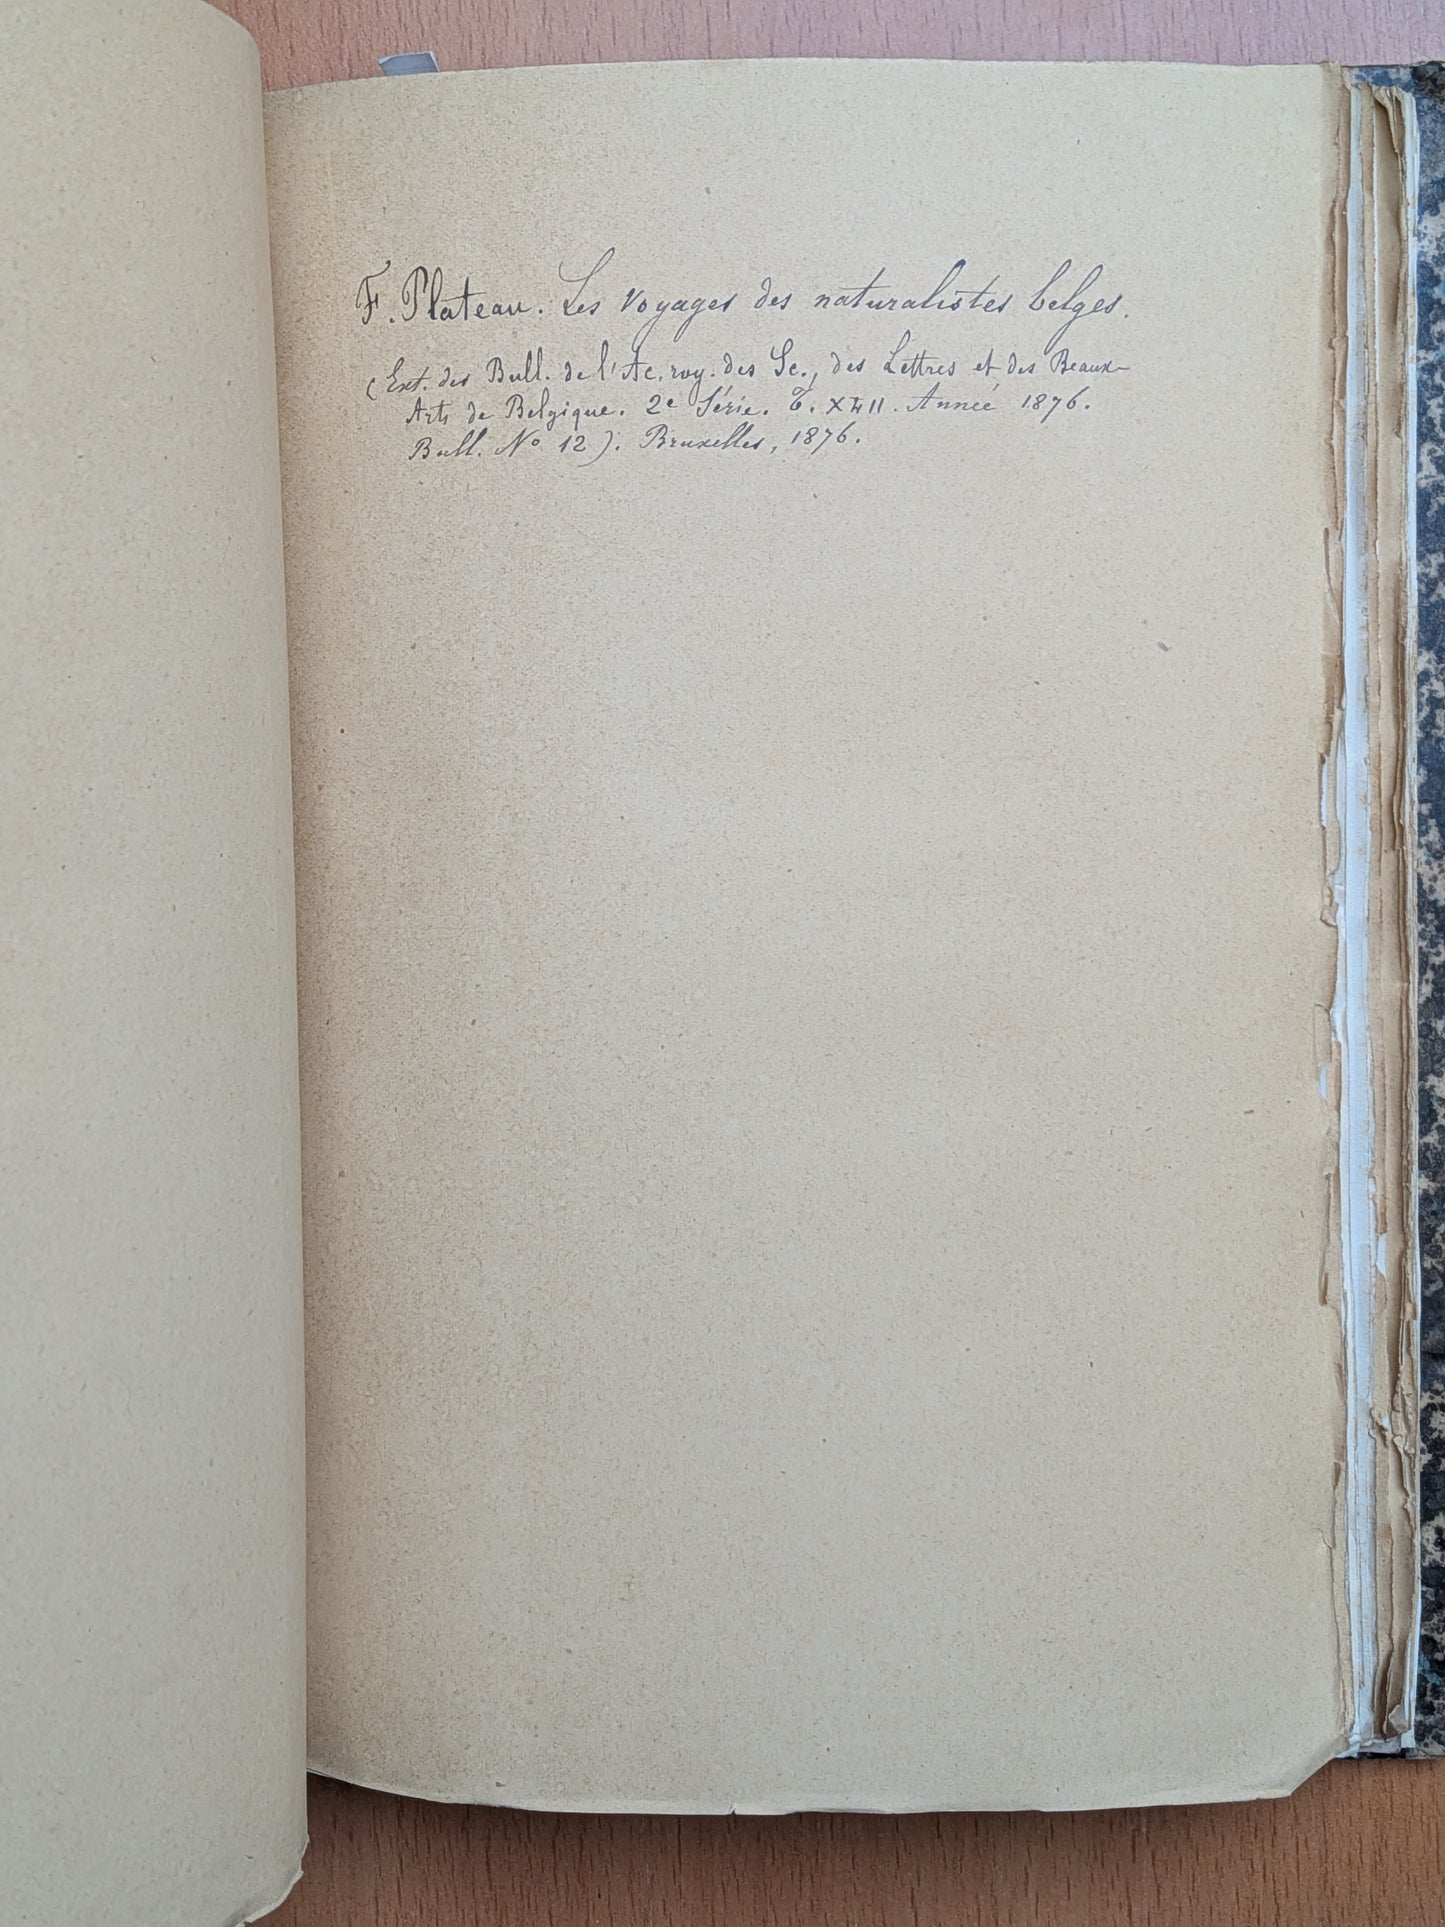 F. Plateau. Les Voyages des naturalistes belges.
(Ext. des Bull. de l'Ac. roy. des Sc., des Lettres et des Beaux-
Arts de Belgique. 2e Série. T. XLII. Année 1876.
Bull. No 12). Bruxelles, 1876.